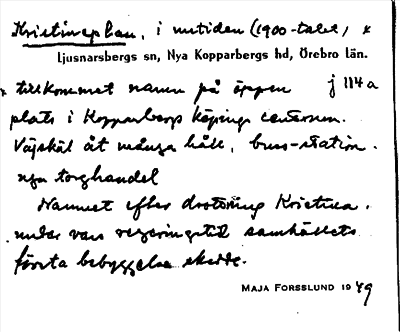 Kristineplan, i nutiden (1900-talet) x
Ljusnarsbergs sn, Nya Kopparbergs hd, Örebro län.
x tillkommet namn på öppen j 114 a
plats i Kopparbergs köpings centrum.
Vägskäl åt många håll, buss-station.
nya torghandel
Namnet efter drottning Kristina,
under vars regeringstid samhällets
första bebyggelse skedde.
MAJA FORSSLUND 1949